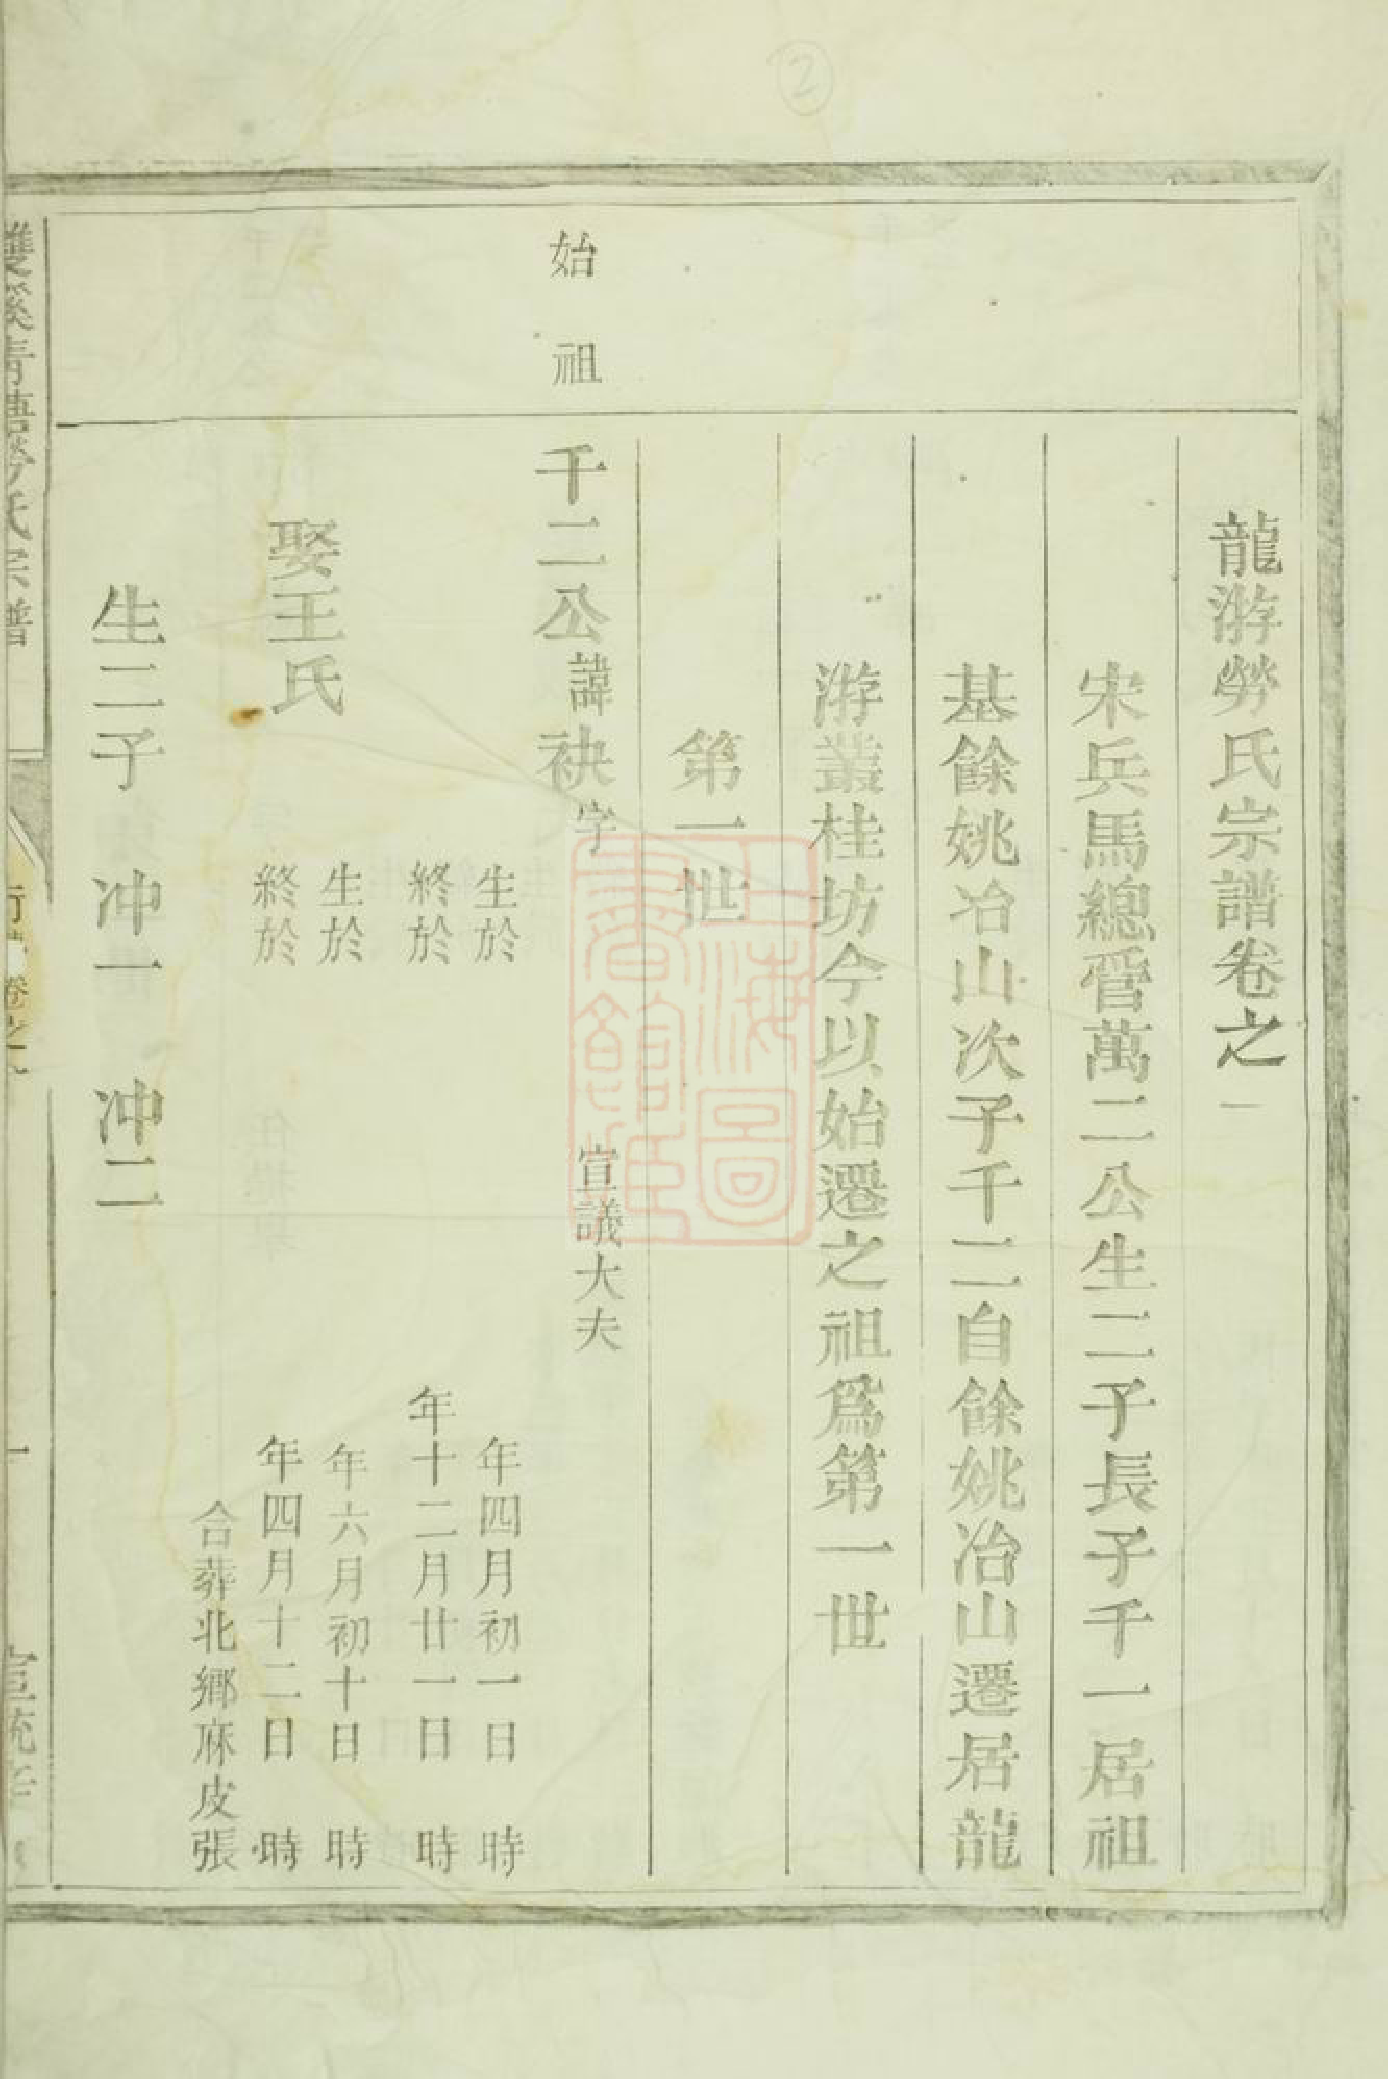 龍游勞氏宗譜卷之一
宋兵馬總管萬二公生二子長子千一居祖
基餘姚冶山次子千二自餘姚冶山遷居龍
游叢桂坊今以始遷之祖爲第一世
第一世
始祖
千二公諱袂字 宣議大夫
生於 年四月初一日 時
終於 年十二月廿一日 時
娶王氏
生於 年六月初十日 時
終於 年四月十二日 時
合葬北鄉麻皮張
生二子 冲一 冲二
雙溪青塘勞氏宗譜
行 卷之
一
宣統
上海圖書館藏
2